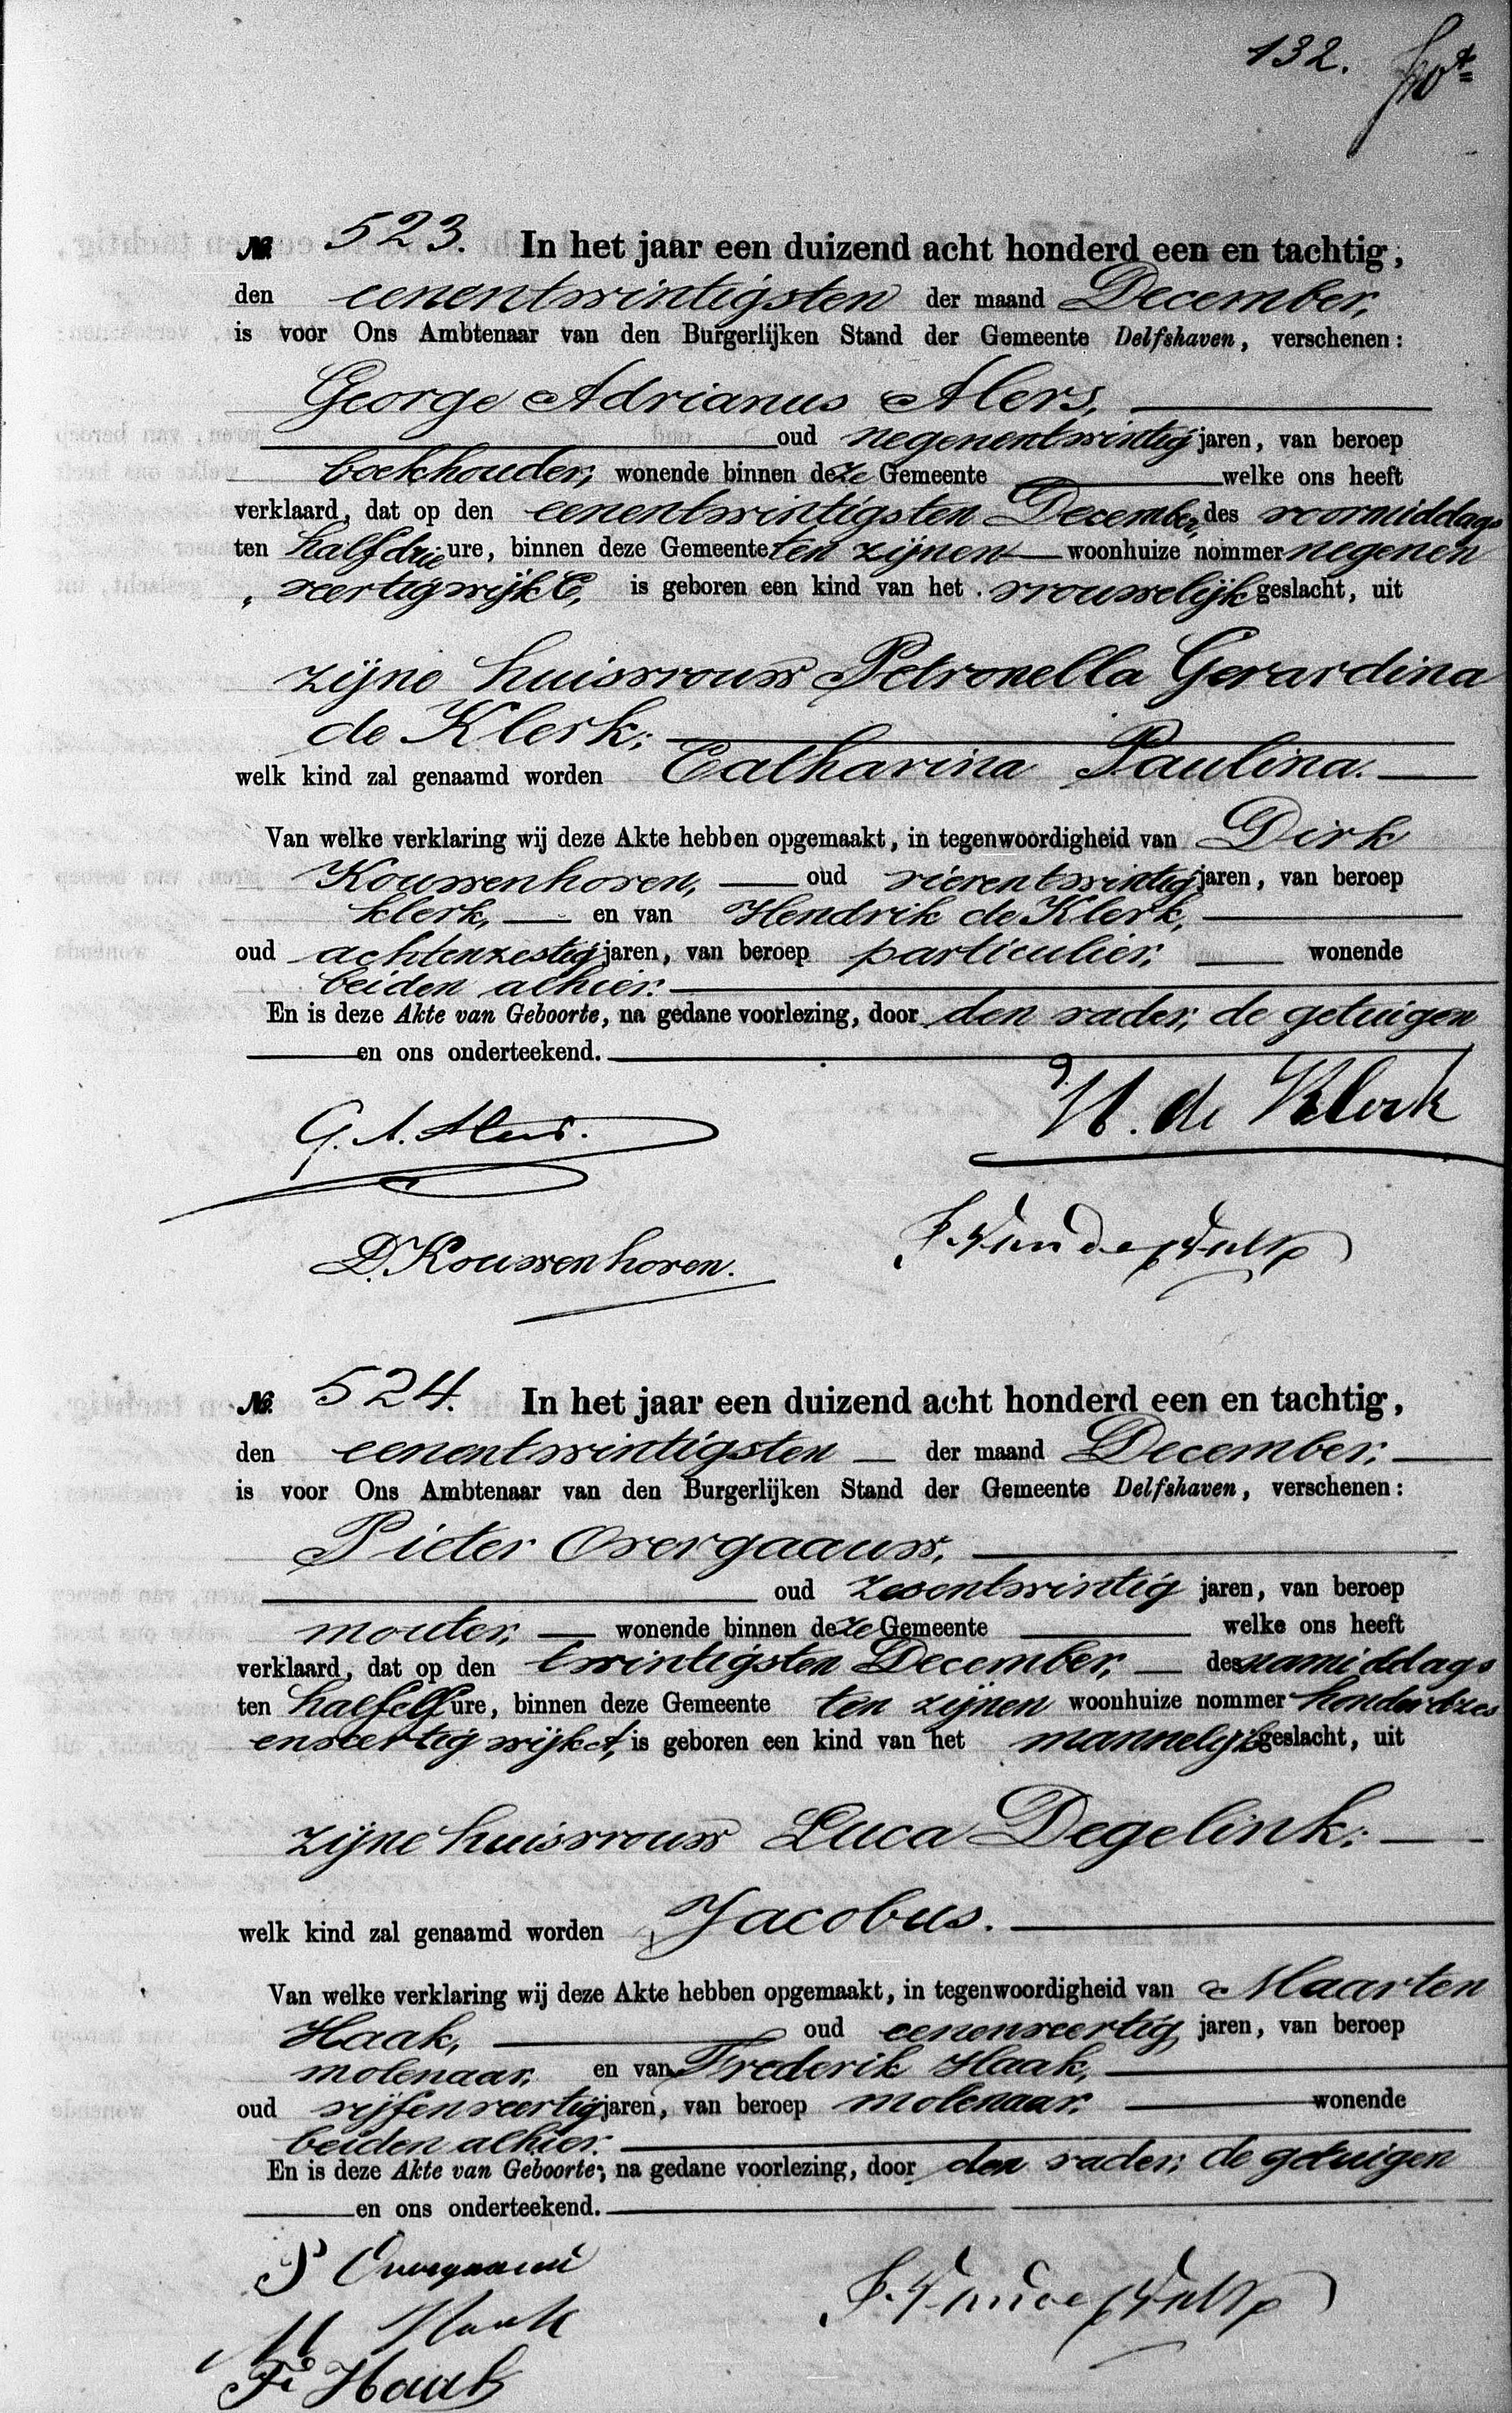 132.
No. 523. In het jaar een duizend acht honderd een en tachtig,
den eenentwintigsten der maand December,
is voor Ons Ambtenaar van den Burgerlijken Stand der Gemeente Delfshaven, verschenen:
George Adrianus Alers,
oud negenentwintig jaren, van beroep
boekhouder, wonende binnen deze Gemeente welke ons heeft
verklaard, dat op den eenentwintigsten December, des voormiddags
ten half drie ure, binnen deze Gemeente ten zijnen woonhuize nommer negenen
veertig wijk C, is geboren een kind van het vrouwelijk geslacht, uit
zijne huisvrouw Petronella Gerardina
de Klerk;
welk kind zal genaamd worden Catharina Paulina.
Van welke verklaring wij deze Akte hebben opgemaakt, in tegenwoordigheid van Dirk
Kouwenhoven, oud vierentwintig jaren, van beroep
klerk, en van Hendrik de Klerk,
oud achtenzestig jaren, van beroep particulier, wonende
beiden alhier.
En is deze Akte van Geboorte, na gedane voorlezing, door den vader, de getuigen
en ons onderteekend.
H. de Klerk
G. A. Alers.
D. Kouwenhoven.
No. 524. In het jaar een duizend acht honderd een en tachtig,
den eenentwintigsten der maand December,
is voor Ons Ambtenaar van den Burgerlijken Stand der Gemeente Delfshaven, verschenen:
Pieter Overgaauw,
oud zesentwintig jaren, van beroep
mouter, wonende binnen deze Gemeente welke ons heeft
verklaard, dat op den twintigsten December, des namiddags
ten half elf ure, binnen deze Gemeente ten zijnen woonhuize nommer honderdzes
enveertig wijk A, is geboren een kind van het mannelijk geslacht, uit
zijne huisvrouw Luca Degelink;
welk kind zal genaamd worden Jacobus.
Van welke verklaring wij deze Akte hebben opgemaakt, in tegenwoordigheid van Maarten
Haak, oud eenenveertig jaren, van beroep
molenaar, en van Frederik Haak,
oud vijfenveertig jaren, van beroep molenaar, wonende
beiden alhier.
En is deze Akte van Geboorte, na gedane voorlezing, door den vader, de getuigen
en ons onderteekend.
P Overgaauw
M Haak
Fr Haak